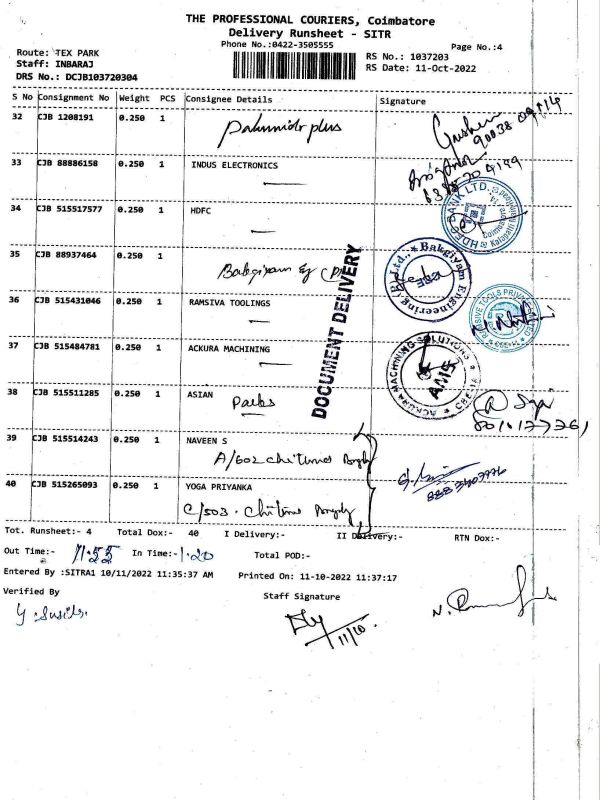 THE PROFESSIONAL COURIERS, Coimbatore
Delivery Runsheet - SITR
Phone No.:0422-3505555
Page No.:4
Route: TEX PARK
Staff: INBARAJ
DRS No.: DCJB103720304
RS No.: 1037203
RS Date: 11-Oct-2022
S No Consignment No Weight PCS Consignee Details Signature
32 CJB 1208191 0.250 1 plus
33 CJB 88886158 0.250 1 INDUS ELECTRONICS
34 CJB 515517577 0.250 1 HDFC
35 CJB 88937464 0.250 1 Bakgiyam Eg (P)
36 CJB 515431046 0.250 1 RAMSIVA TOOLINGS
37 CJB 515484781 0.250 1 ACKURA MACHINING
38 CJB 515511285 0.250 1 ASIAN
Parks
39 CJB 515514243 0.250 1 NAVEEN S
A/602
40 CJB 515265093 0.250 1 YOGA PRIYANKA
C/503.
DOCUMENT DELIVERY
Bakgiyam Engineering (P) Ltd.,
CBE
ACKURA MACHINING SOLUTIONS
CBE-14
Tot. Runsheet:- 4 Total Dox:- 40 I Delivery:- II Delivery:- RTN Dox:-
Out Time:- 11.55 In Time:- 1.20 Total POD:-
Entered By :SITRA1 10/11/2022 11:35:37 AM Printed On: 11-10-2022 11:37:17
Verified By
Staff Signature
11/10